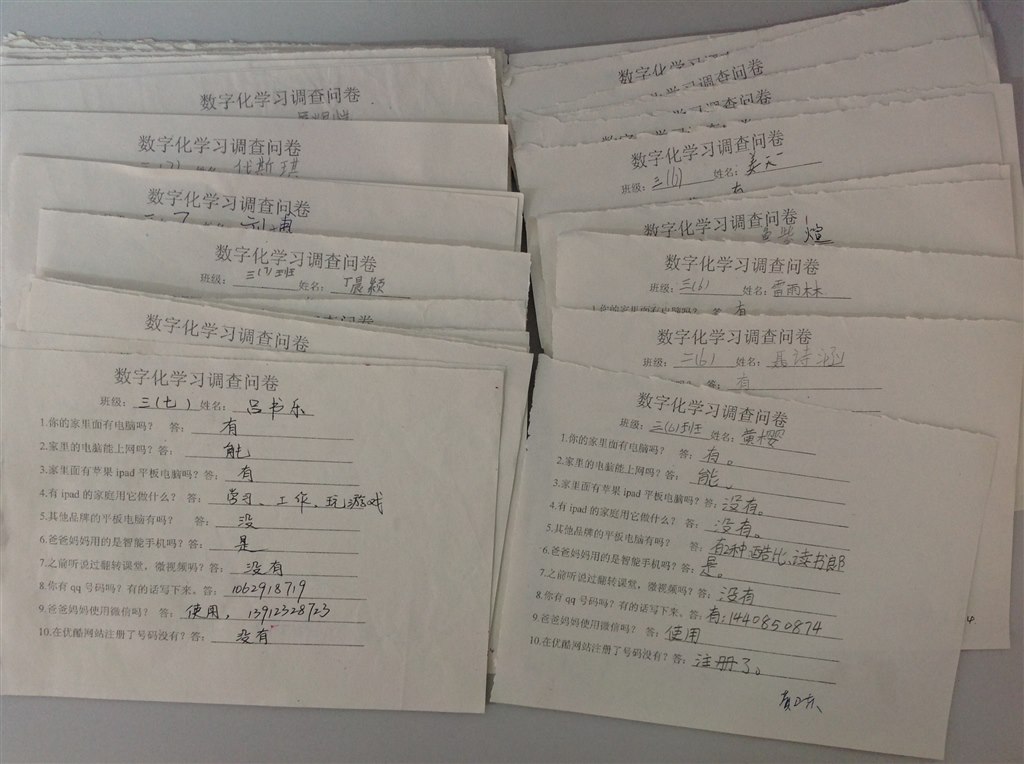 数字化学习调查问卷
数字化学习调查问卷
三(7) 代斯琪
数字化学习调查问卷
数字化学习调查问卷
班级: 三(7)班 姓名: 丁晨颖
数字化学习调查问卷
数字化学习调查问卷
班级: 三(七) 姓名: 吕书乐
1.你的家里面有电脑吗? 答: 有
2.家里的电脑能上网吗? 答: 能
3.家里面有苹果 ipad 平板电脑吗? 答: 有
4.有 ipad 的家庭用它做什么? 答: 学习、工作、玩游戏
5.其他品牌的平板电脑有吗? 答: 没
6.爸爸妈妈用的是智能手机吗? 答: 是
7.之前听说过翻转课堂，微视频吗? 答: 没有
8.你有 qq 号码吗? 有的话写下来。答: 1062918719
9.爸爸妈妈使用微信吗? 答: 使用, 13912328723
10.在优酷网站注册了号码没有? 答: 没有
数字化
调查问卷
数字化学习调查问卷
班级: 三(6) 姓名: 姜天一
有
数字化学习调查问卷
煊
数字化学习调查问卷
班级: 三(6) 姓名: 雷雨林
1.你的家里面有电脑吗? 答: 有
数字化学习调查问卷
班级: 三(6) 姓名: 诗涵
答: 有
数字化学习调查问卷
班级: 三(6)班 姓名: 黄樱
1.你的家里面有电脑吗? 答: 有。
2.家里的电脑能上网吗? 答: 能。
3.家里面有苹果 ipad 平板电脑吗? 答: 没有。
4.有 ipad 的家庭用它做什么? 答: 没有。
5.其他品牌的平板电脑有吗? 答: 有2种 酷比、读书郎
6.爸爸妈妈用的是智能手机吗? 答: 是。
7.之前听说过翻转课堂，微视频吗? 答: 没有
8.你有 qq 号码吗? 有的话写下来。答: 有:1440850874
9.爸爸妈妈使用微信吗? 答: 使用
10.在优酷网站注册了号码没有? 答: 注册了。